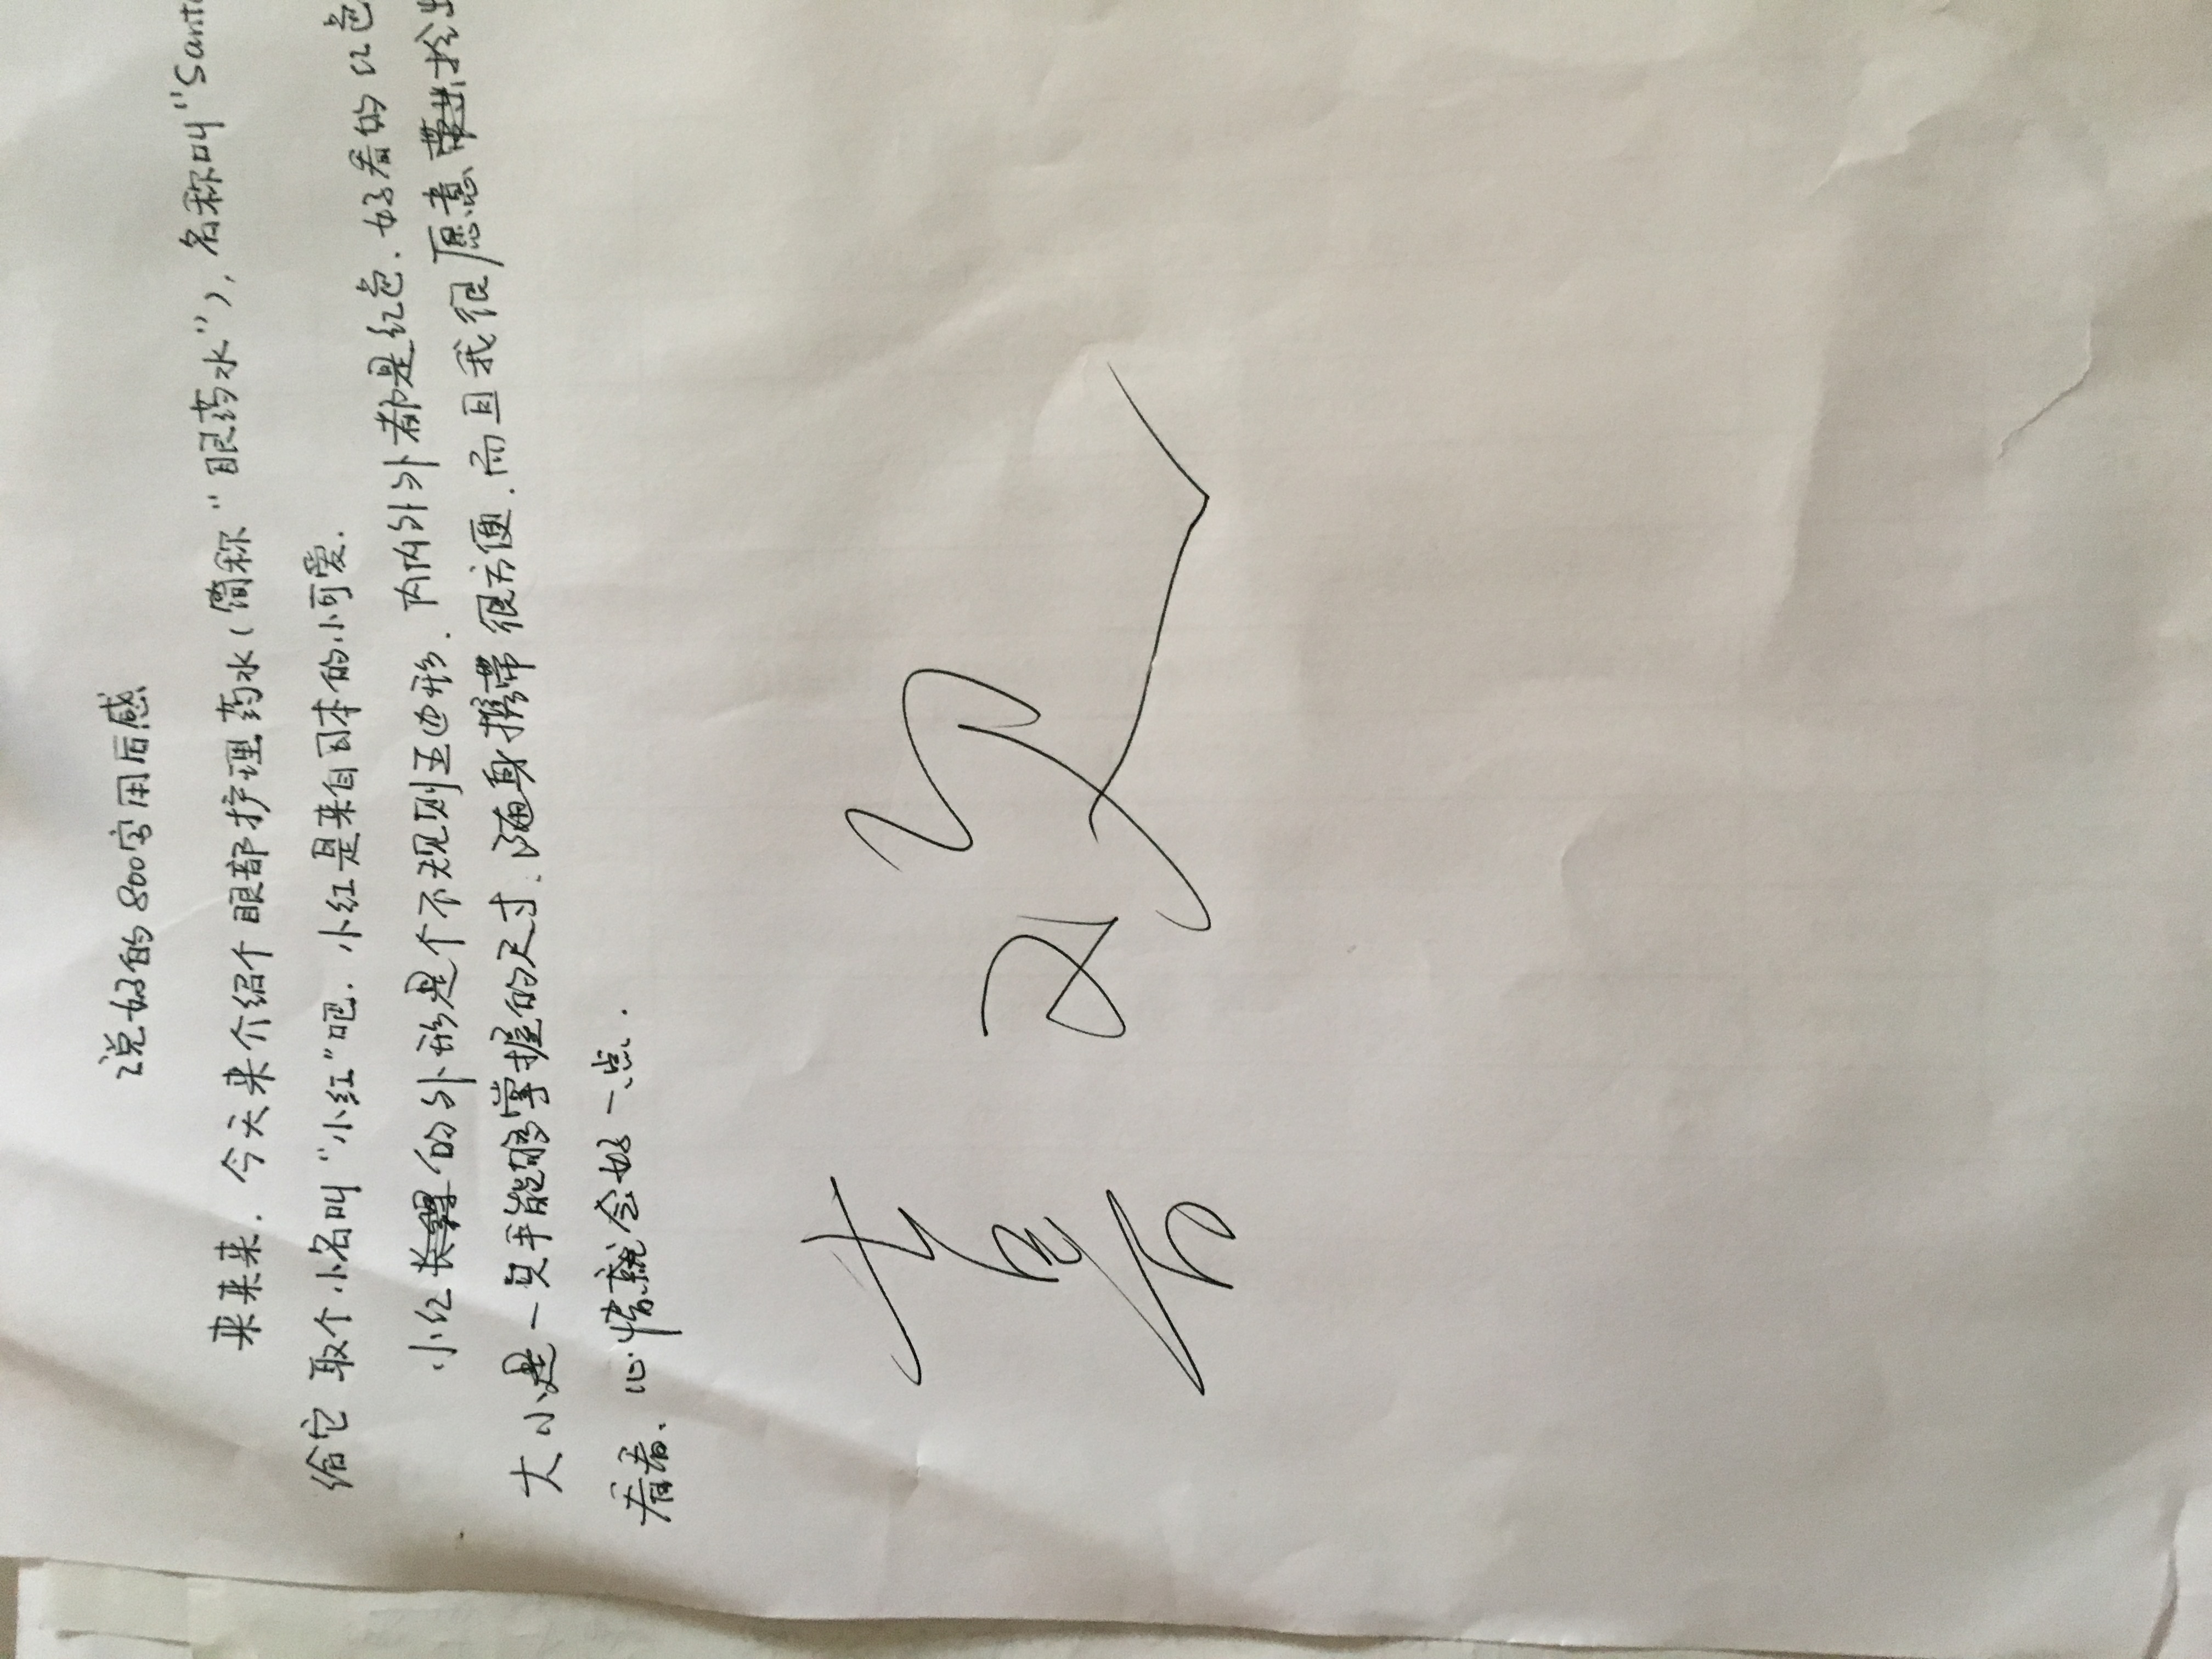 说好的800字用后感
来来来. 今天来介绍个眼部护理药水(简称“眼药水”), 名称叫“Sant
给它取个小名叫“小红”吧. 小红是来自日本的小可爱.
小红的外形是个不规则五边形. 内内外外都是红色. 好看的红色
大小是一只手能够掌握的尺寸. 随身携带很方便. 而且我很愿意拎出
看看. 心情就会好一点.
喜欢